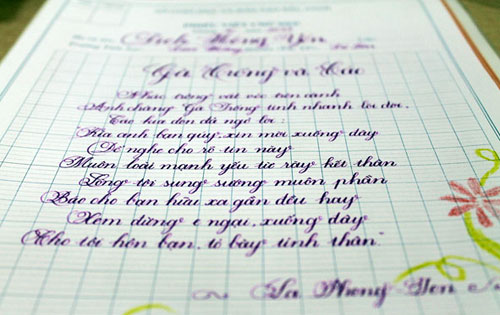 Gà Trống và Cáo
Nhác trông vắt vẻo trên cành
Anh chàng Gà Trống tinh nhanh lõi đời.
Cáo kia đon đả ngỏ lời:
"Kìa anh bạn quý, xin mời xuống đây
Để nghe cho rõ tin này
Muôn loài mạnh yếu từ rày kết thân
Lòng tôi sung sướng muôn phần
Báo cho bạn hữu xa gần đều hay
Xin đừng e ngại, xuống đây
Cho tôi hôn bạn, tỏ bày tình thân."
La Phông-Ten